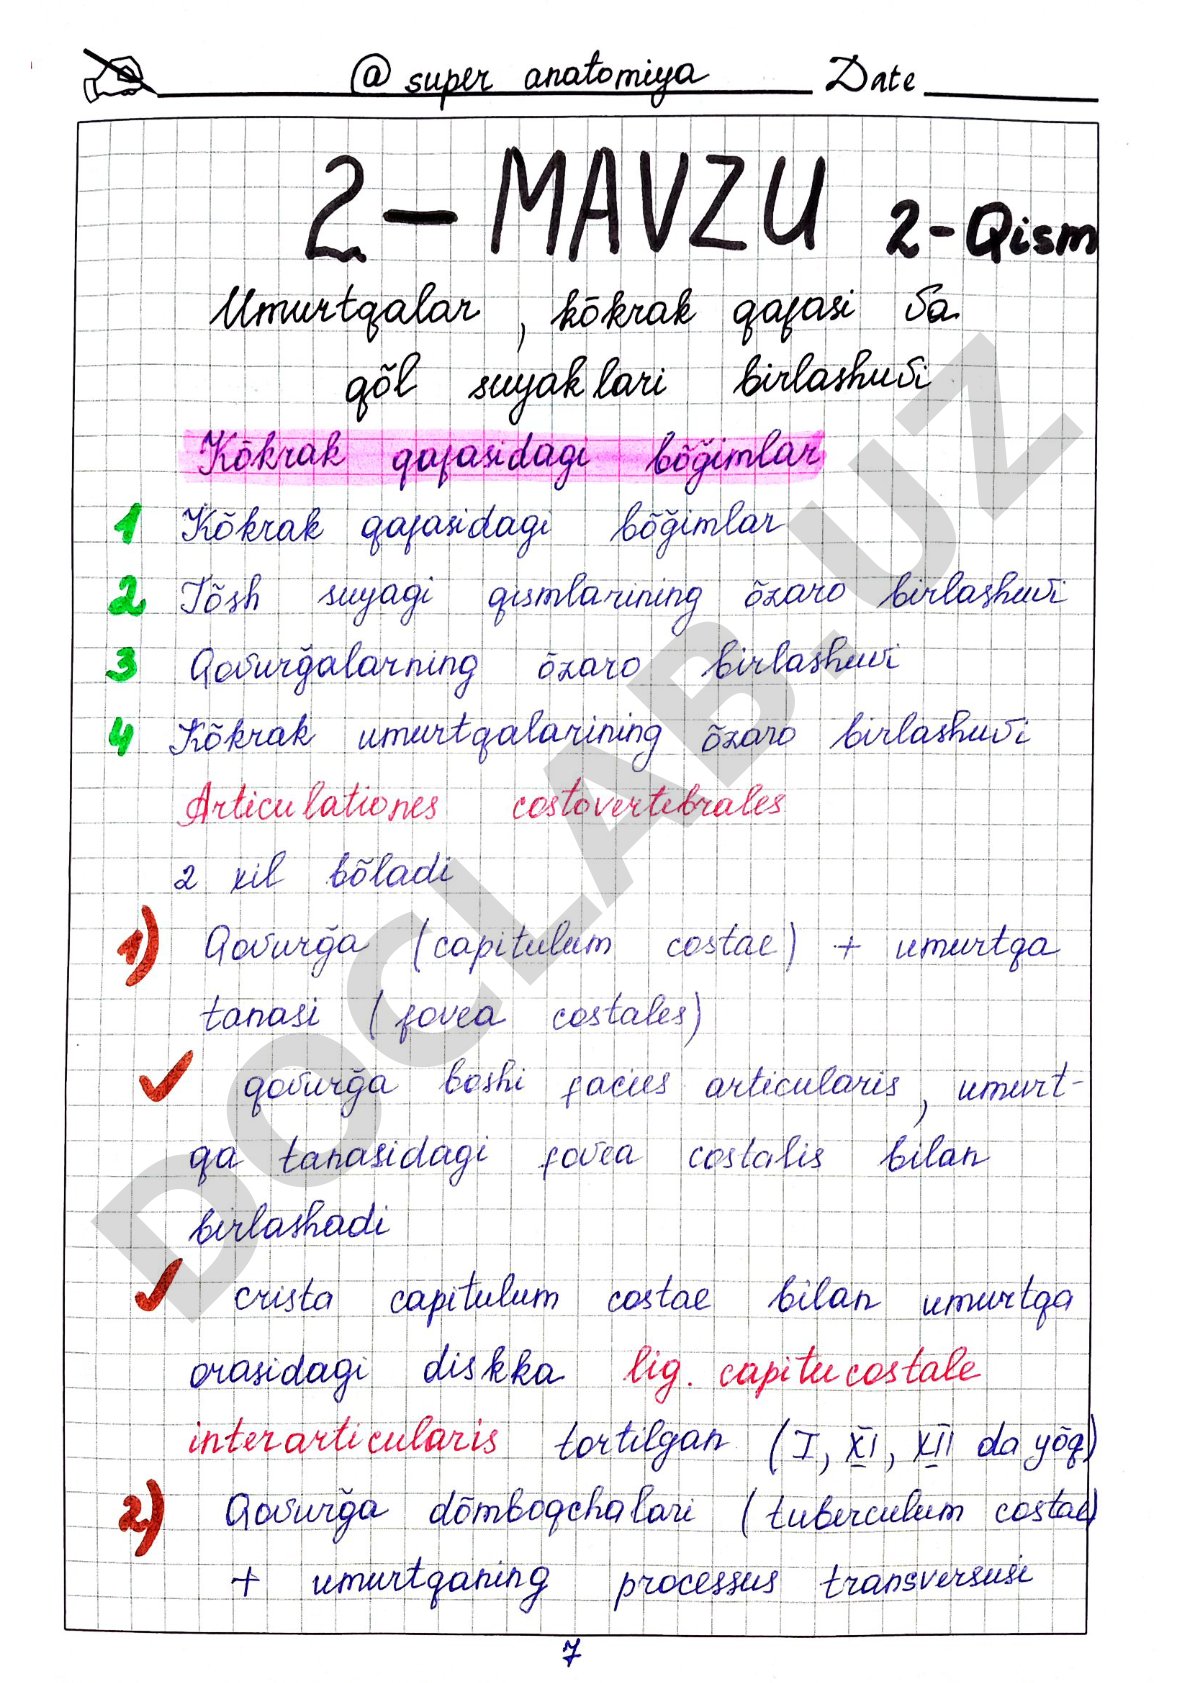 @ super anatomiya Date
2-MAVZU 2-Qism
Umurtqalar, kõkrak qafasi va
qõl suyaklari birlashuvi
Kõkrak qafasidagi bõğimlar
1 Kõkrak qafasidagi bõğimlar
2 Tõsh suyagi qismlarining õzaro birlashuvi
3 Qovurğalarning õzaro birlashuvi
4 Kõkrak umurtqalarining õzaro birlashuvi
Articulationes costovertebrales
2 xil bõladi
1) Qovurğa (capitulum costae) + umurtqa
tanasi (fovea costales)
✓ qovurğa boshi facies articularis, umurt-
qa tanasidagi fovea costalis bilan
birlashadi
✓ crista capitulum costae bilan umurtqa
orasidagi diskka lig. capitu costale
interarticularis tortilgan (I, XI, XII da yõq)
2) Qovurğa dõmboqchalari (tuberculum costae)
+ umurtqaning processus transversusi
7
DOCLAB.UZ